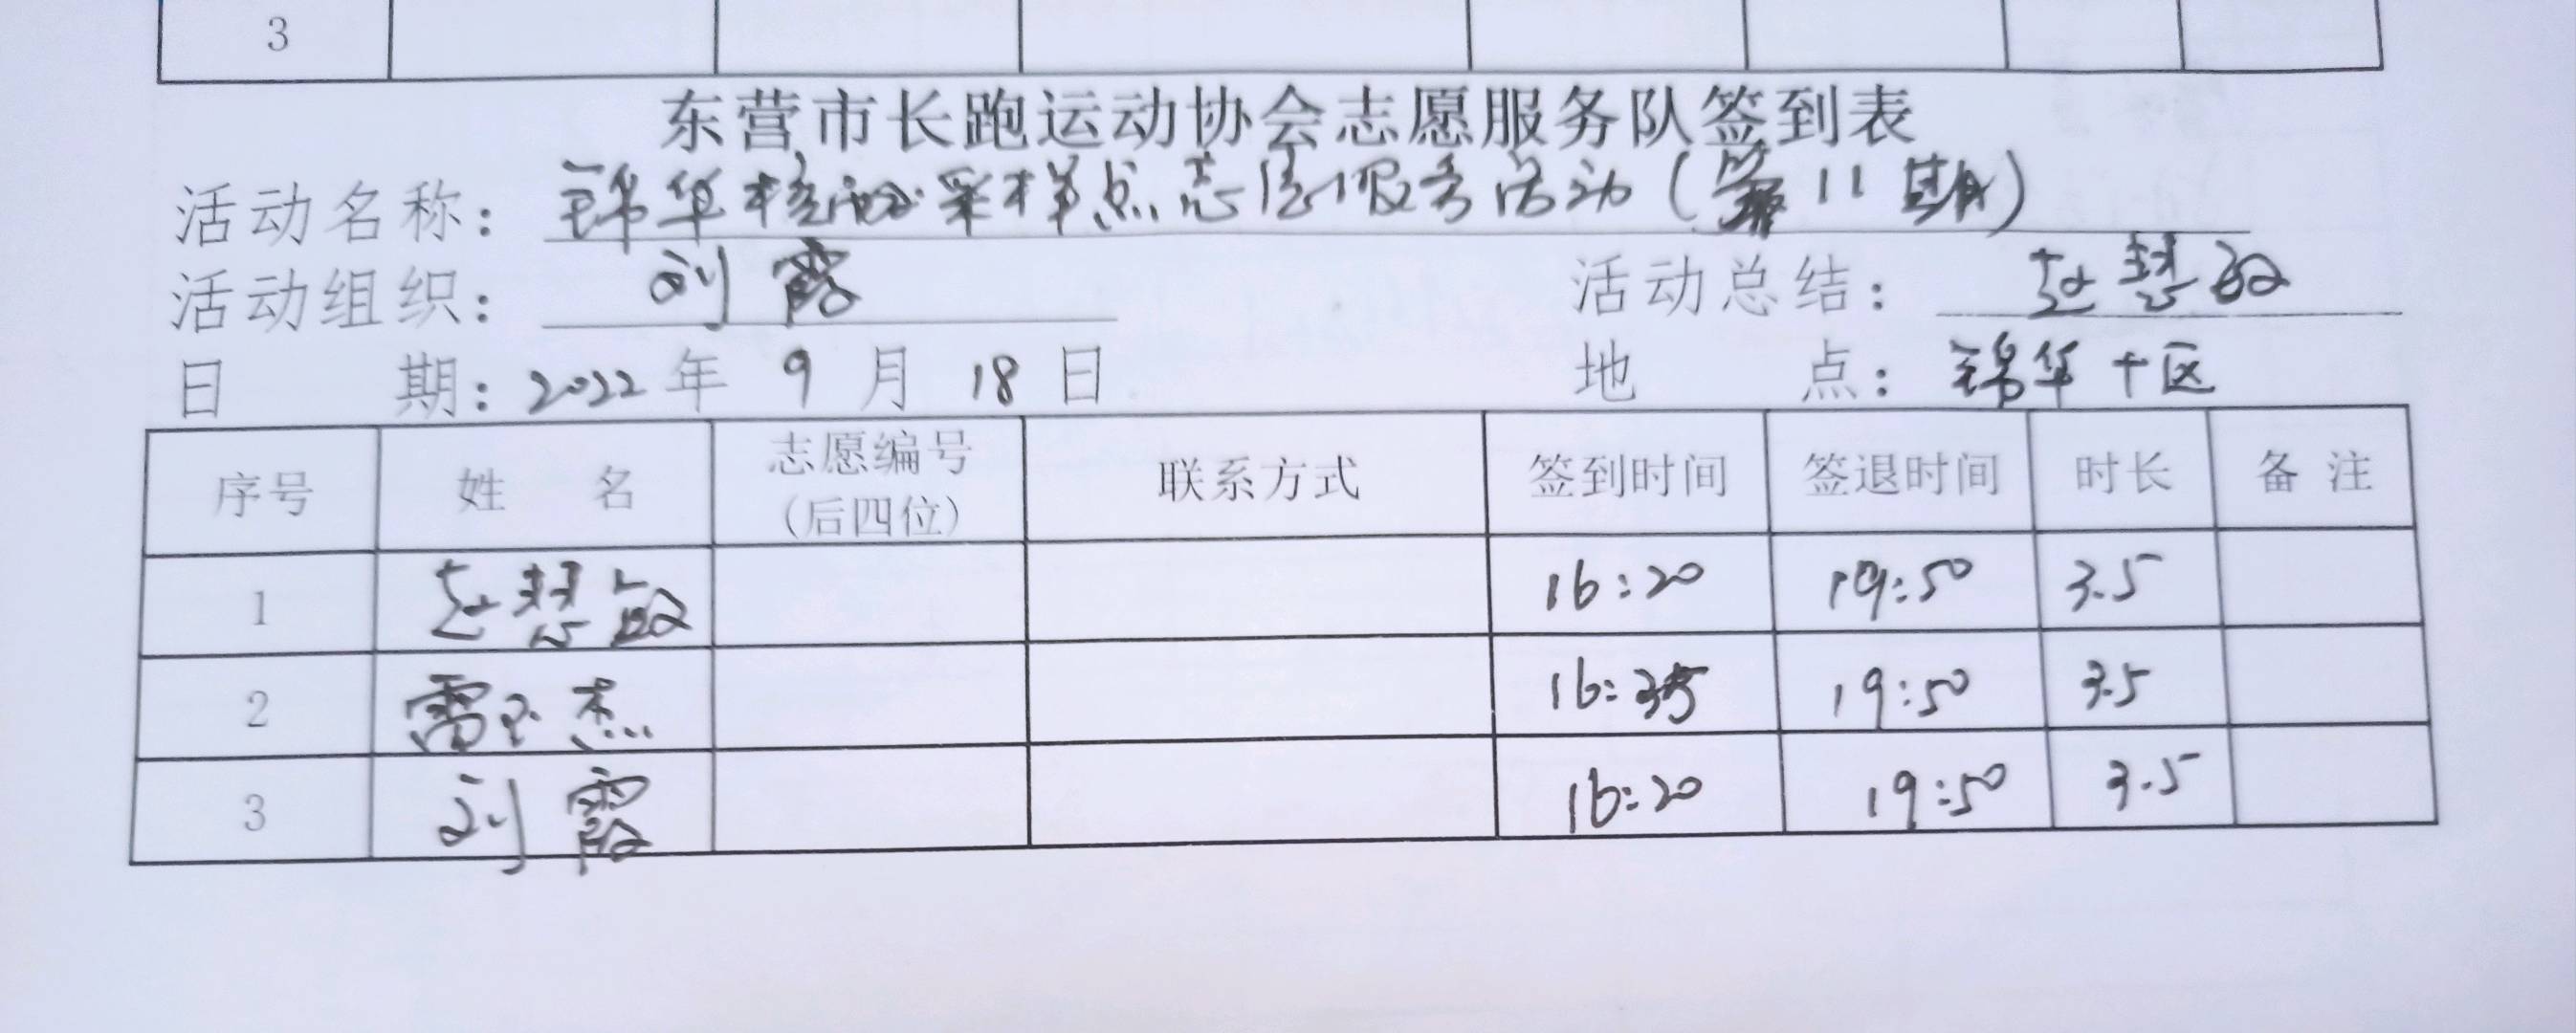 3
东营市长跑运动协会志愿服务队签到表
活动名称：锦华核酸采样点志愿服务活动（第11期）
活动组织：刘霞 活动总结：赵慧敏
日 期：2022年9月18日 地 点：锦华十区
序号 姓 名 志愿编号（后四位） 联系方式 签到时间 签退时间 时长 备注
1 赵慧敏 16:20 19:50 3.5
2 雷 杰 16:35 19:50 3.5
3 刘霞 16:20 19:50 3.5